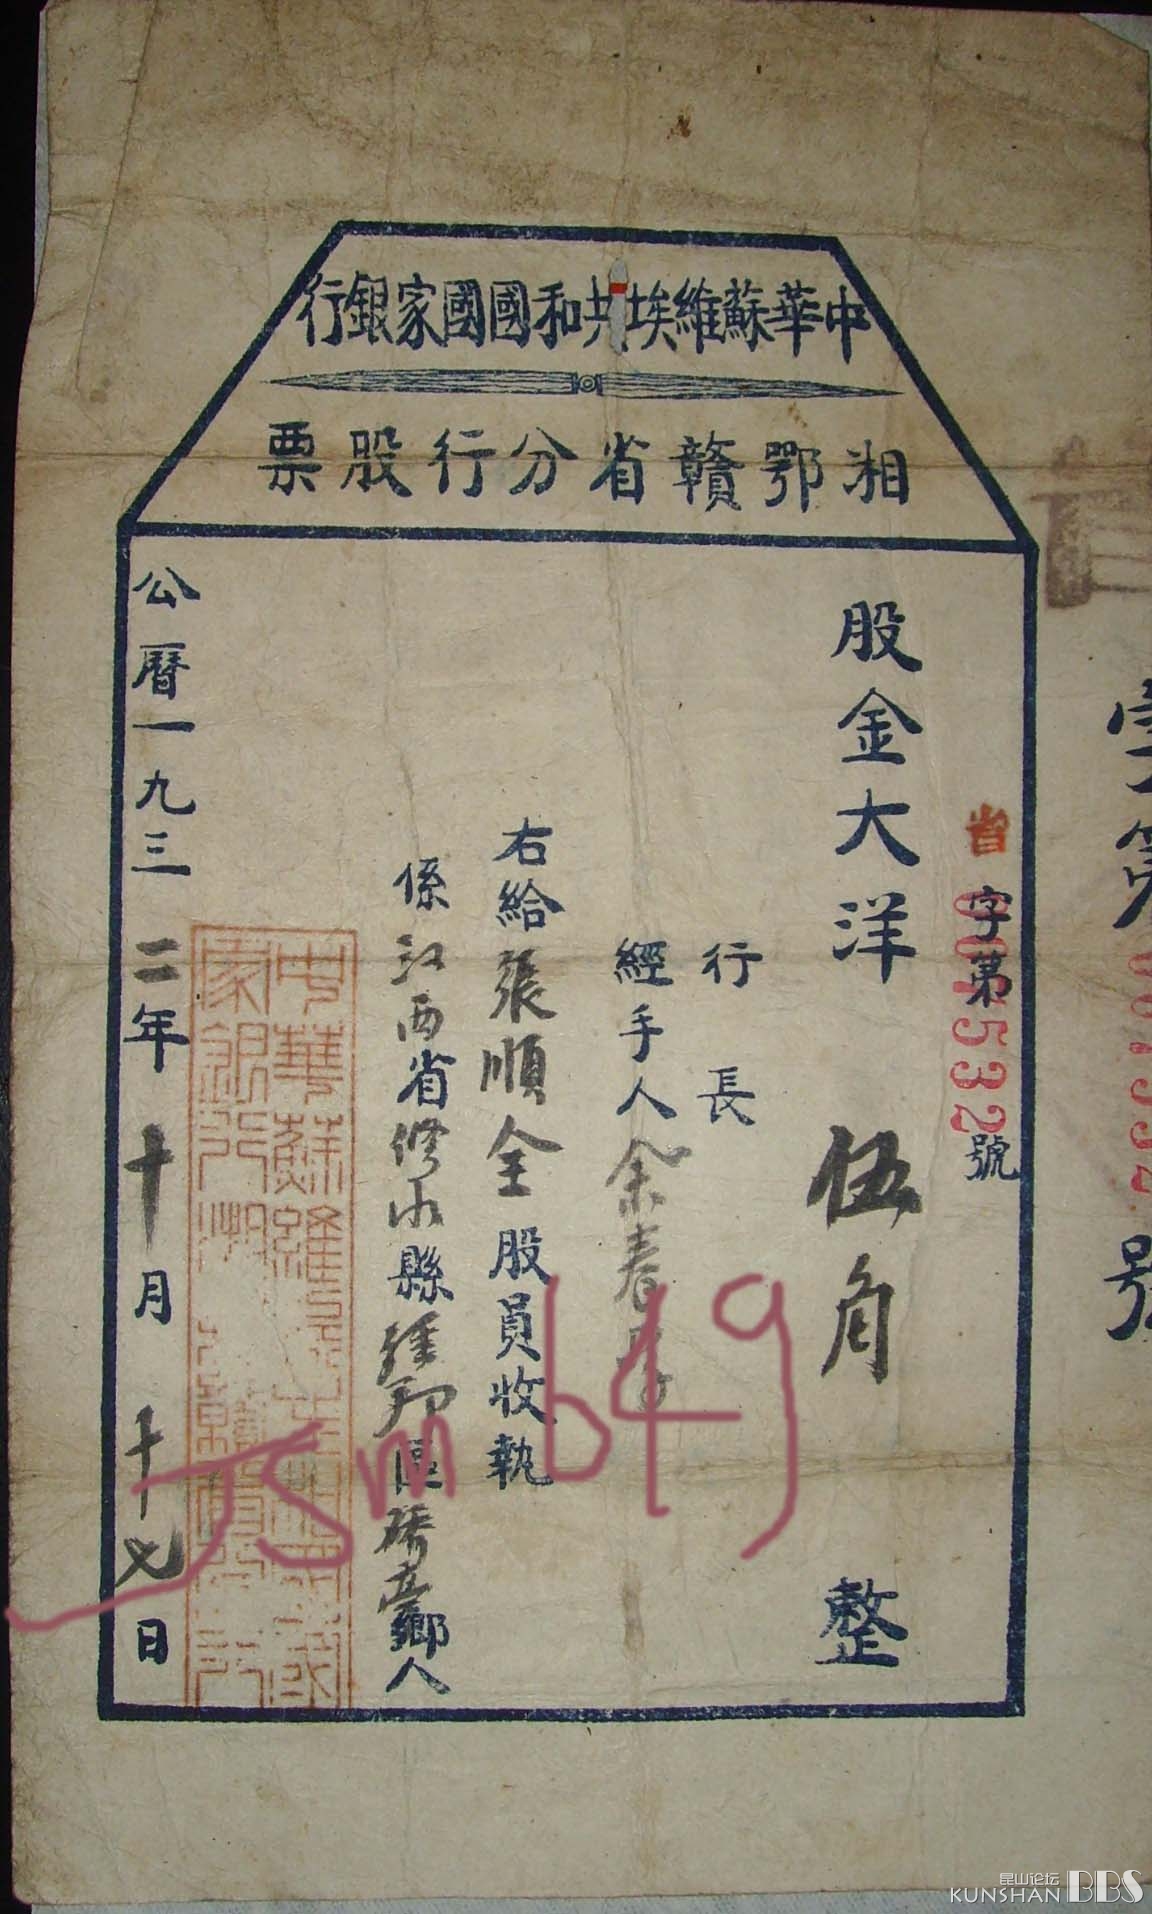 中華蘇維埃共和國國家銀行
湘鄂贛省分行股票
省字第004532號
股金大洋伍角整
行長
經手人余春
右給張順全股員收執
係江西省修水縣 區 鄉人
公曆一九三二年十月十七日
中華蘇維埃共和國
家銀行湘鄂贛省分行
字第
號
JSmb49
昆山论坛
KUNSHAN BBS